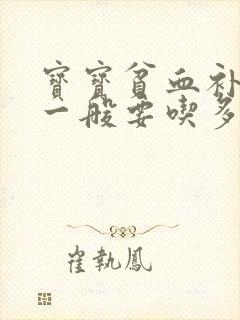 寶寶貧血补
一般要喫多
崔執鳳